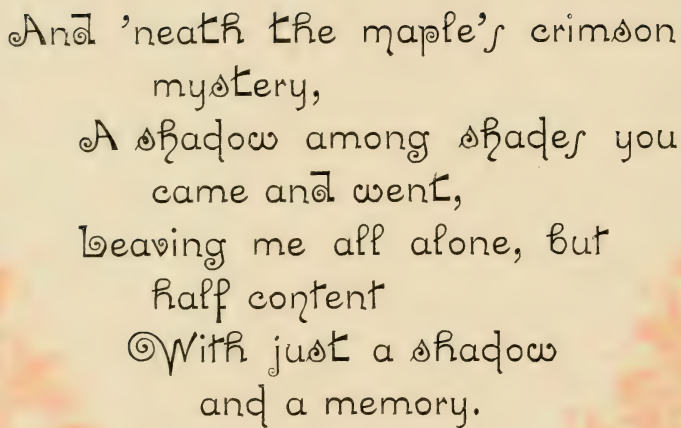 And 'neath the maple's crimson
mystery,
A shadow among shades you
came and went,
Leaving me all alone, but
half content
With just a shadow
and a memory.